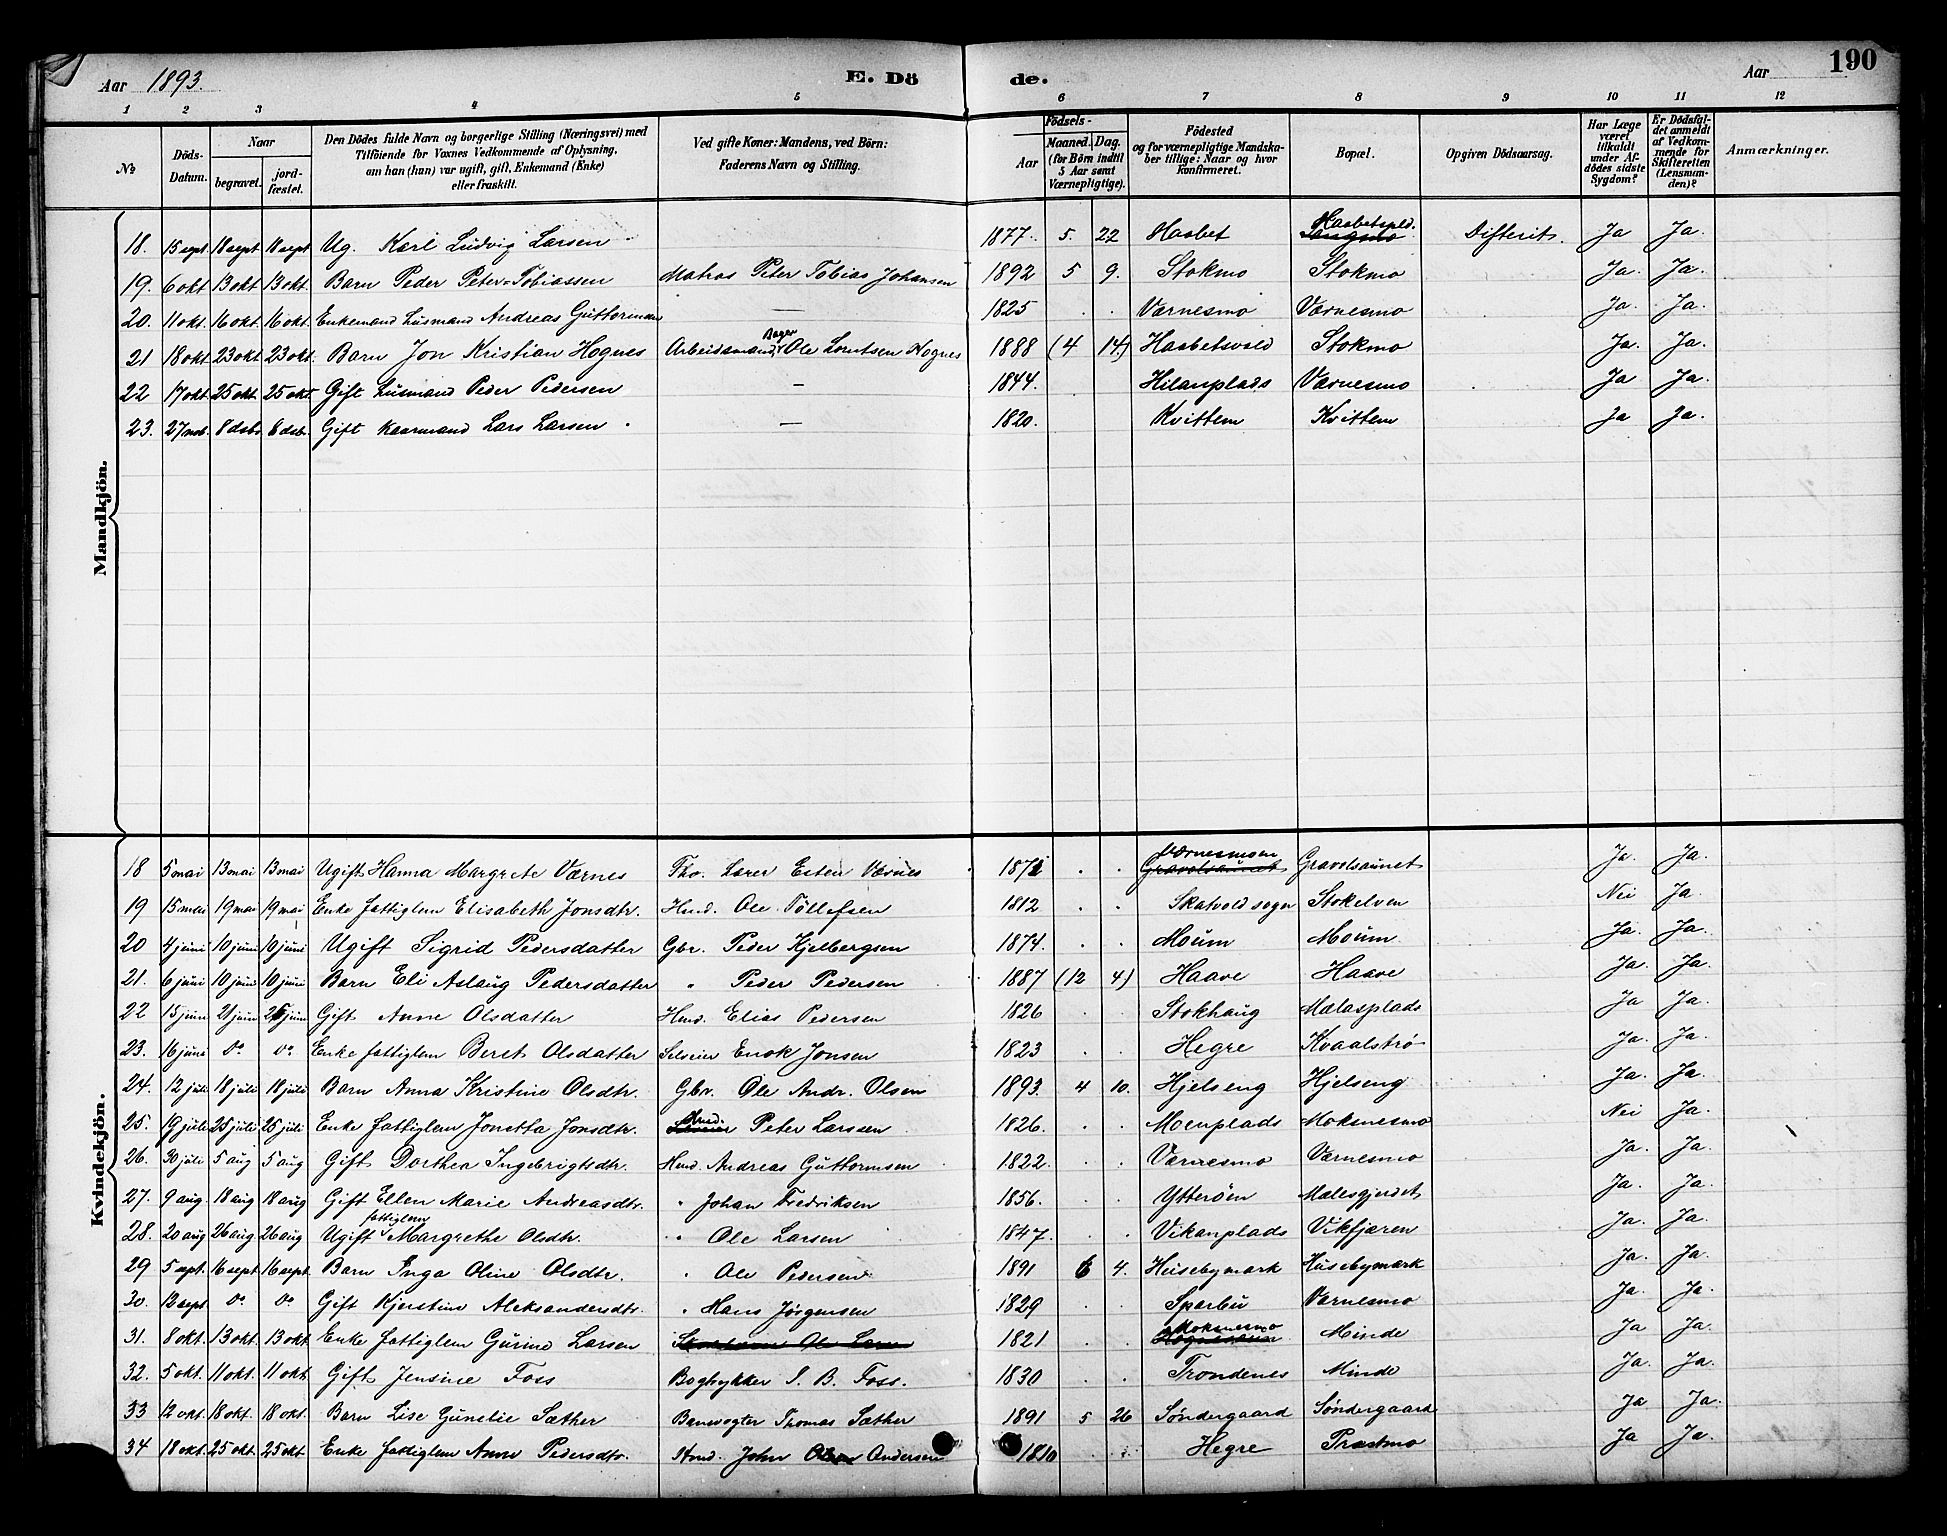 Aar 1893. E. Dö de. Aar 190
1 2 3 4 5 6 7 8 9 10 11 12
№ Döds-Datum. Naar begravet. jord-fæstet. Den Dödes fulde Navn og borgerlige Stilling (Næringsvei) med Tilföiende for Voxnes Vedkommende af Oplysning, om han (hun) var ugift, gift, Enkemand (Enke) eller fraskilt. Ved gifte Koner: Mandens, ved Börn: Faderens Navn og Stilling. Födsels- Aar Maaned. Dag. (for Börn indtil 5 Aar samt Værnepligtige). Födested og for værnepligtige Mandska-ber tillige: Naar og hvor konfirmeret. Bopæl. Opgiven Dödsaarsag. Har Læge været tilkaldt under Af-dödes sidste Sygdom? Er Dödsfal-det anmeldt af Vedkom-mende for Skifteretten (Lensman-den)? Anmærkninger.
Mandkjön.
18. 15 sept. 18 sept 18 sept Ug. Karl Ludvig Larsen 1877. 5. 22 Haabet Haabetspld. Difterit. Ja Ja.
19. 6 okt 13 okt 13 okt. Barn Peder Peter Tobiassen Matros Peter Tobias Johansen 1892 5 9. Stokmo Stokmo Ja. Ja.
20. 11 okt. 16 okt. 16 okt. Enkemand Husmand Andreas Guttormsen — 1825 Værnesmo Værnesmo Ja. Ja.
21 18 okt 23 okt 23 okt. Barn Jon Kristian Hognes Arbeidsmand Bager Ole Lorntsen Hognes 1888 (4 14.) Haabetsvold Stokmo Ja. Ja.
22 17 okt. 25 okt. 25 okt Gift Husmand Peder Pedersen — 1844. Hilanplads Værnesmo Ja Ja.
23. 27 nob. 8 dsbr 8 dsb. Gift Kaarmand Lars Larsen — 1820. Kvittem Kvittem Ja Ja.
Kvindekjön.
18 5 mai 13 mai 13 mai Ugift Hanna Margrete Værnes Fho. Lærer Esten Værnes 1872 Værnesmoen Gravolsaunet Gravolsaunet Ja. Ja.
19 15 mai 19 mai 19 mai Enke fattiglem Elisabeth Jonsdtr. Husd. Ole Tollefsen 1812 Skatvold sogn Stokelven Nei Ja.
20 4 juni 10 juni 10 juni Ugift Sigrid Pedersdatter Gbr. Peder Kjelbergsen 1874. Moum Moum Ja. Ja.
21. 6 juni 10 juni 10 juni Barn Eli Aslaug Pedersdatter " Peder Pedersen 1887 (12 4) Haave Haave Ja. Ja.
22 15 juni 21 juni juni Gift Anne Olsdatter Husd. Elias Pedersen 1826 Stokhaug Mælasplads Ja Ja.
23. 16 juni do do Enke fattiglem Beret Olsdatter Selveier Enok Jonsen 1823 Hegre Kvaalstrø Ja. Ja.
24. 12 juli 18 juli 18 juli Barn Anna Kristine Olsdtr. Gbr. Ole Andr. Olsen 1893. 4 10. Hjelseng Hjelseng Ja. Ja.
25. 19 juli 25 juli 25 juli Enke fattiglem Jonetta Jonsdtr. Husd. Peter Larssen 1826. Moenplads Moksnesmo Nei Ja.
26. 30 juli 5 aug 5 aug Gift Dorthea Ingebrigtsdtr. Husd. Andreas Guttormsen 1822. Værnesmo Værnesmo Ja. Ja.
27. 9 aug. 18 aug 18 aug Gift Ellen Marie Andreasdtr. " Johan Fredriksen 1856. Ytterøen Mælesgjerdet Ja. Ja.
28. 20 aug 26 aug. 26 aug Ugift fattiglem Margrethe Olsdtr. " Ole Larsen 1847. Vikanplads Vikfjæren Ja. Ja.
29 5 sept. 16 sept 16 sept. Barn Inga Oline Olsdtr. " Ole Pedersen 1891 6 4. Husebymark Husebymark Ja. Ja.
30. 12 sept do do Gift Kjerstine Aleksandersdtr. " Hans Jørgensen 1829 Sparbu Værnesmo Ja. Ja.
31. 8 okt. 13 okt. 13 okt Enke fattiglem Gurine Larsen 1821 Moksnesmo Minde Ja Ja.
32. 5 okt. 11 okt. 11 okt Gift Jensine Foss Bogtrykker S. B. Foss. 1830 Trondenes Minde Ja. Ja.
33 12 okt. 18 okt. 18 okt. Barn Lise Gunelie Sæther Banevogter Thomas Sæther 1891 5 26 Søndergaard Søndergaard Ja Ja.
34 18 okt. 25 okt. 25 okt Enke fattiglem Anne Pedersdtr. Husd. John Olsen Andersen 1810 Hegre Præstmo Ja Ja.